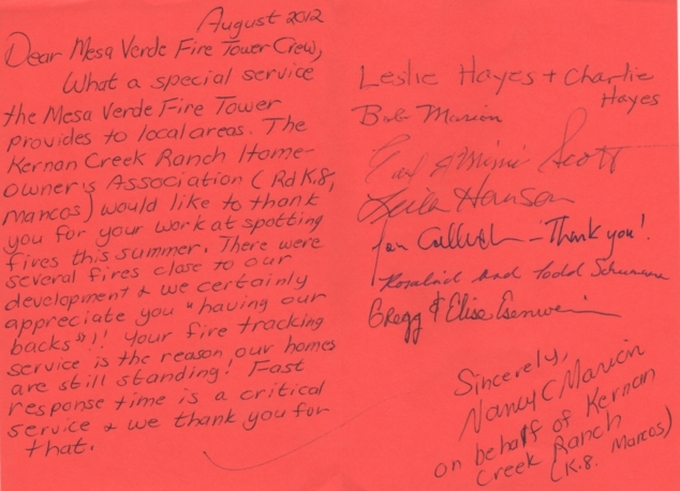 August 2012
Dear Mesa Verde Fire Tower Crew,
What a special service
the Mesa Verde Fire Tower
provides to local areas. The
Kernan Creek Ranch Home-
owner's Association (Rd K.8,
Mancos) would like to thank
you for your work at spotting
fires this summer. There were
several fires close to our
development & we certainly
appreciate you "having our
backs"!! Your fire tracking
service is the reason our homes
are still standing! Fast
response time is a critical
service & we thank you for
that.
Leslie Hayes + Charlie
Hayes
Bob Marion
& Mimi Scott
Hanson
Jan - Thank you!
Rosalind and Todd
Gregg & Elise Esenwein
Sincerely,
Nancy C Marion
on behalf of Kernan
Creek Ranch
(K.8. Mancos)